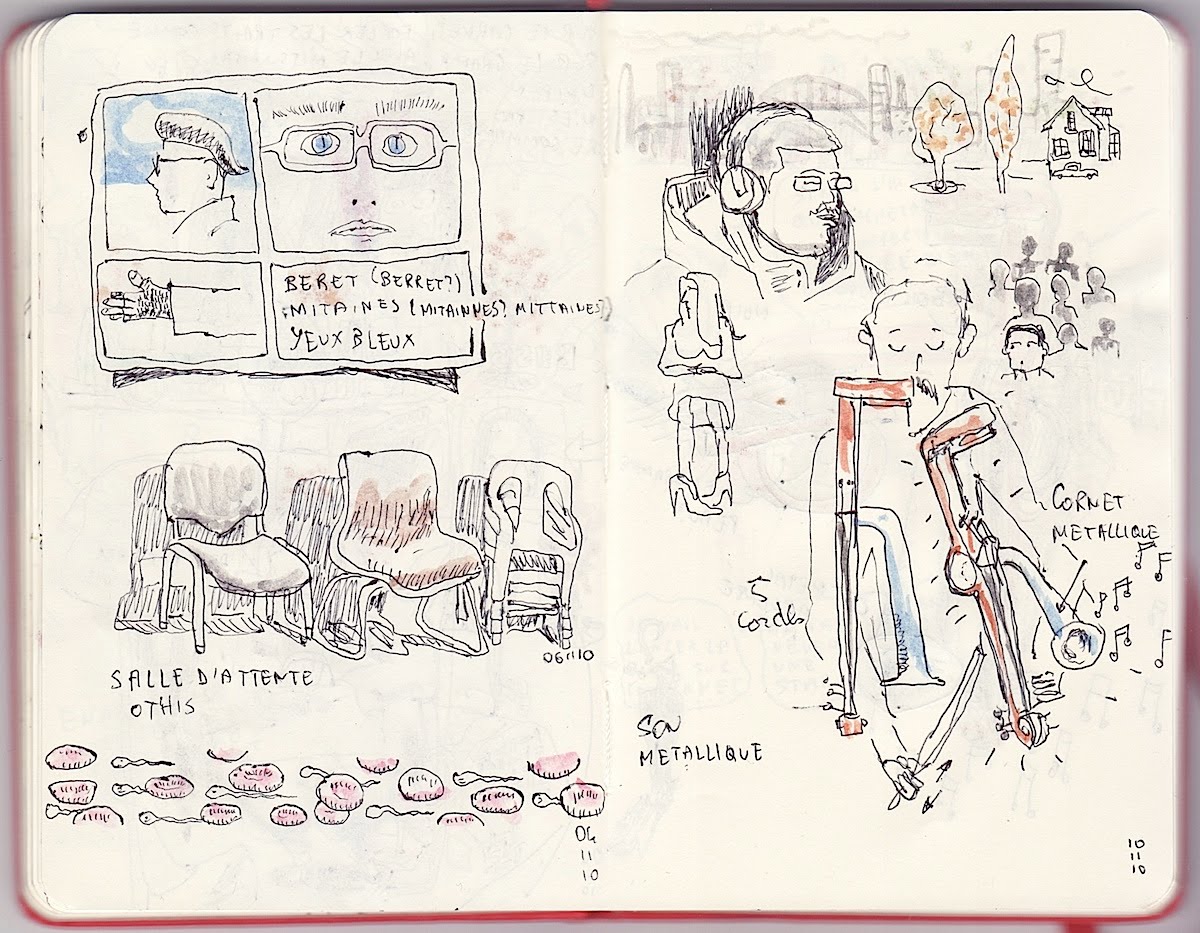 BERET (BERRET?)
MITAINES (MITAINNES? MITTAINES?)
YEUX BLEUX
06 11 10
SALLE D'ATTENTE
OTHIS
04
11
10
CORNET
METALLIQUE
5
cordes
SON
METALLIQUE
10
11
10